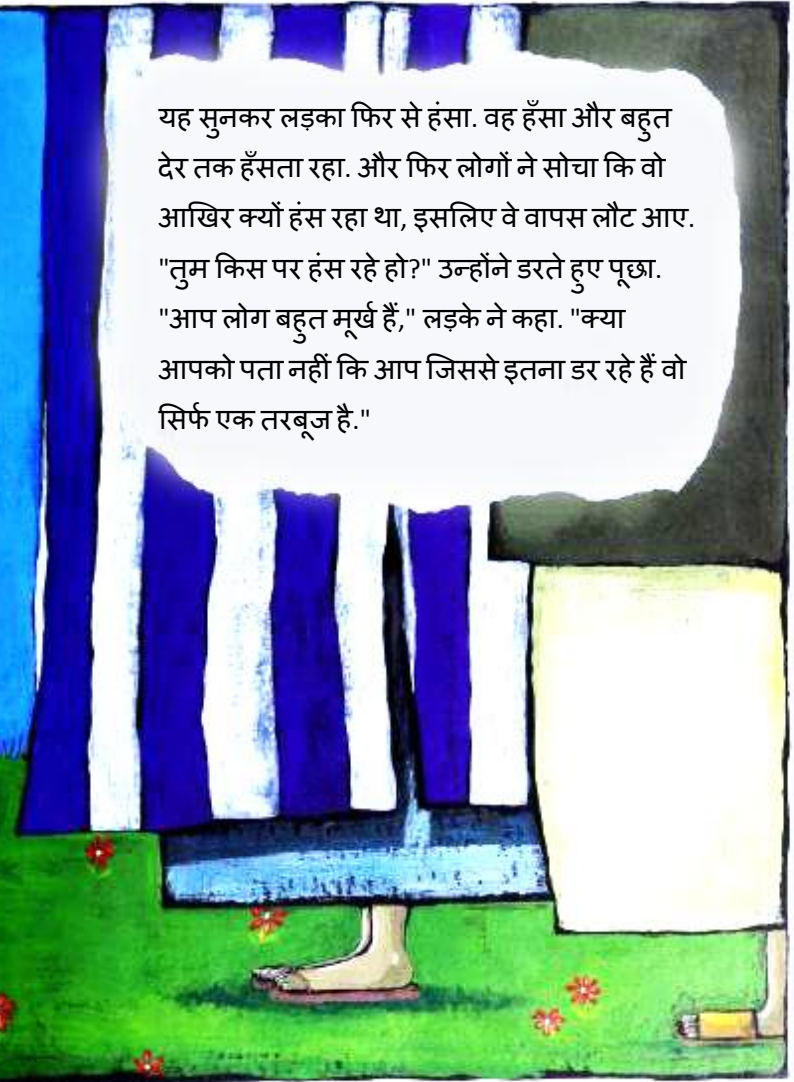 यह सुनकर लड़का फिर से हंसा. वह हँसा और बहुत
देर तक हँसता रहा. और फिर लोगों ने सोचा कि वो
आखिर क्यों हंस रहा था, इसलिए वे वापस लौट आए.
"तुम किस पर हंस रहे हो?" उन्होंने डरते हुए पूछा.
"आप लोग बहुत मूर्ख हैं," लड़के ने कहा. "क्या
आपको पता नहीं कि आप जिससे इतना डर रहे हैं वो
सिर्फ एक तरबूज है."